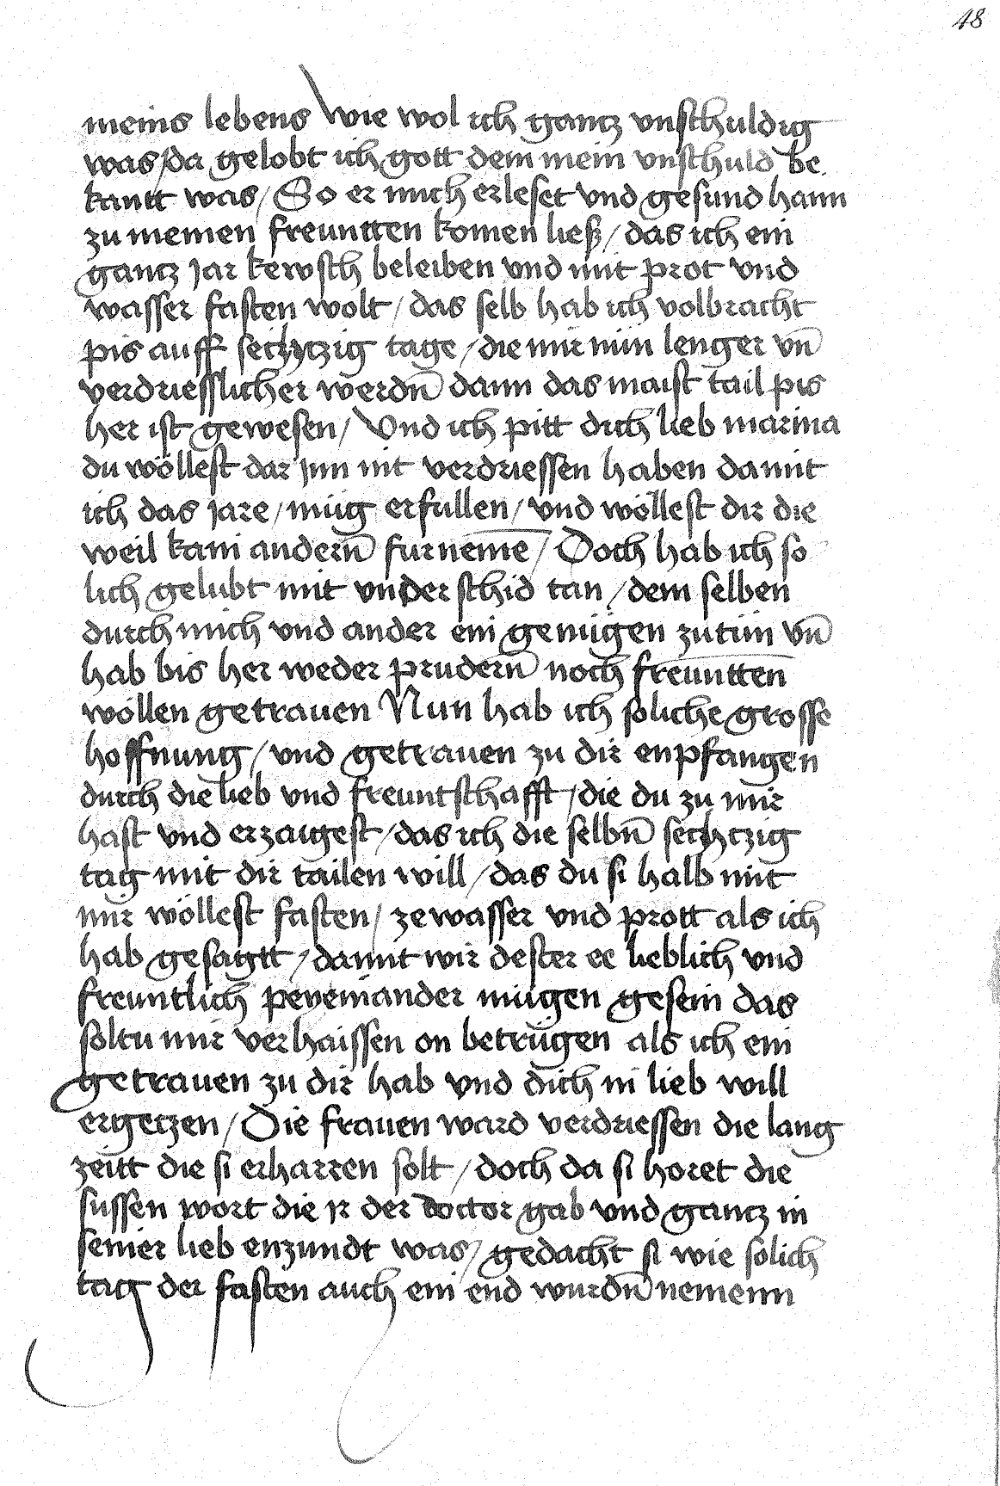 48
meins lebens Wie wol ich gantz vnschuldig
was / da gelobt ich gott dem mein vnschuld be
kantt was / So er mich erleset vnd gesund hann
zu meinen freuntten komen ließ / das ich ein
gantz jar kewsch beleiben vnd mit prot vnd
wasser fasten wolt / das selb hab ich volbracht
pis auff sechtzig tage / die mir nün lenger vn̄
verdriesslicher werdn̄ dann das maist tail pis
her ist gewesen / Vnd ich pitt dich lieb marina
du wöllest dar jnn nit verdriessen haben damit
ich das jare / müg erfullen / vnd wöllest dir die
weil kain andern̄ furneme / Doch hab ich so
lich gelubt mit vnderschid tan / dem selben
durch mich vnd ander ein genügen zutün vn̄
hab bis her weder prudern̄ noch freuntten
wöllen getrauen Nun hab ich soliche grosse
hoffnung / vnd getrauen zu dir enpfangen
durch die lieb vnd freuntschafft / die du zu mir
hast vnd erzaigest / das ich die selbn̄ sechtzig
tag mit dir tailen will / das du si halb mit
mir wöllest fasten / zewasser vnd prott als ich
hab gesagtt / damit wir dester ee lieblich vnd
freuntlich peyeinander mügen gesein das
soltu mir verhaissen on betrügen als ich ein
getrauen zu dir hab vnd dich in lieb will
ergetzen / Die frauen ward verdriessen die lang
zeitt die si erharren solt / doch da si horet die
sussen wort die jr der doctor gab vnd gantz in
seiner lieb enzundt was / gedacht si wie solich
tag der fasten auch ein end wurdn̄ nemenn